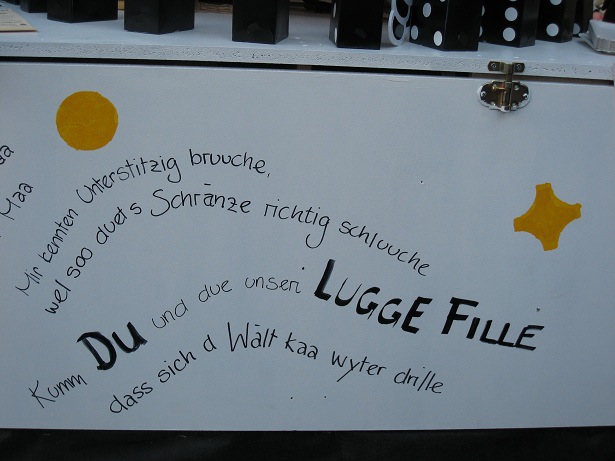 Maa
Mir kennten Unterstitzig bruuche,
wel soo duets Schränze richtig schluuche
Kumm DU und due unseri LUGGE FILLE
dass sich d Wält kaa wyter drille